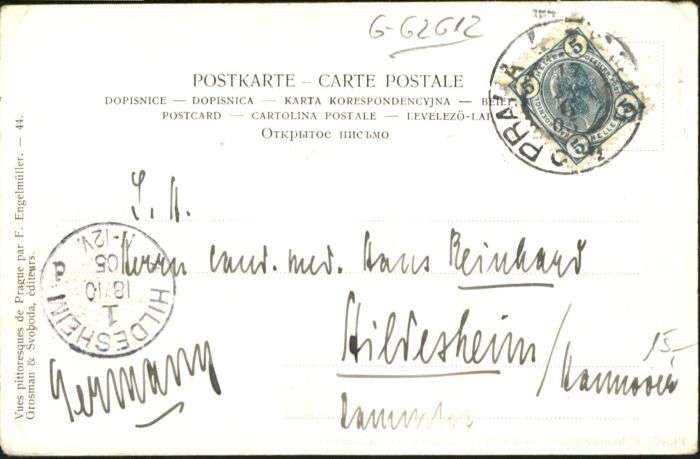 G-62612
POSTKARTE – CARTE POSTALE
DOPISNICE — DOPISNICA — KARTA KORESPONDENCYJNA —
POSTCARD — CARTOLINA POSTALE — LEVELEZŐ-LAP
Открытое письмо
PRAHA
5 5 5 5
Herrn cand. med. Hans Reinhard
Hildesheim / Hannover
15-
Germany
HILDESHEIM
1
18.10
05.
11-12V.
Vues pittoresques de Prague par F. Engelmüller. — 44.
Grosman & Svoboda, éditeurs.